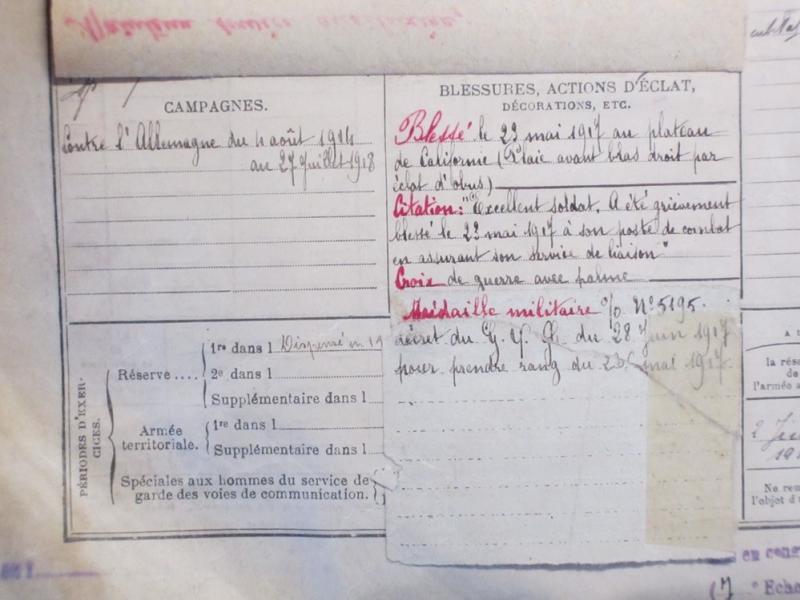 CAMPAGNES.
Contre l'Allemagne du 4 août 1914
au 27 Juillet 1918
BLESSURES, ACTIONS D'ÉCLAT,
DÉCORATIONS, ETC.
Blessé le 23 mai 1917 au plateau
de Californie (Plaie avant bras droit par
éclat d'obus)
Citation: "Excellent soldat. A été grièvement
blessé le 23 mai 1917 à son poste de combat
en assurant son service de liaison"
Croix de guerre avec palme
Médaille militaire Nº 5195.
décret du G. Q. G. du 28 Juin 1917
pour prendre rang du 23 mai 1917.
PÉRIODES D'EXER-
CICES.
Réserve....
1re dans l Dispensé en 19
2e dans l
Supplémentaire dans l
Armée
territoriale.
1re dans l
Supplémentaire dans l
Spéciales aux hommes du service de
garde des voies de communication.
la rés
de
l'armée a
2
19
Ne rem
l'objet d'u
en cong
Eche